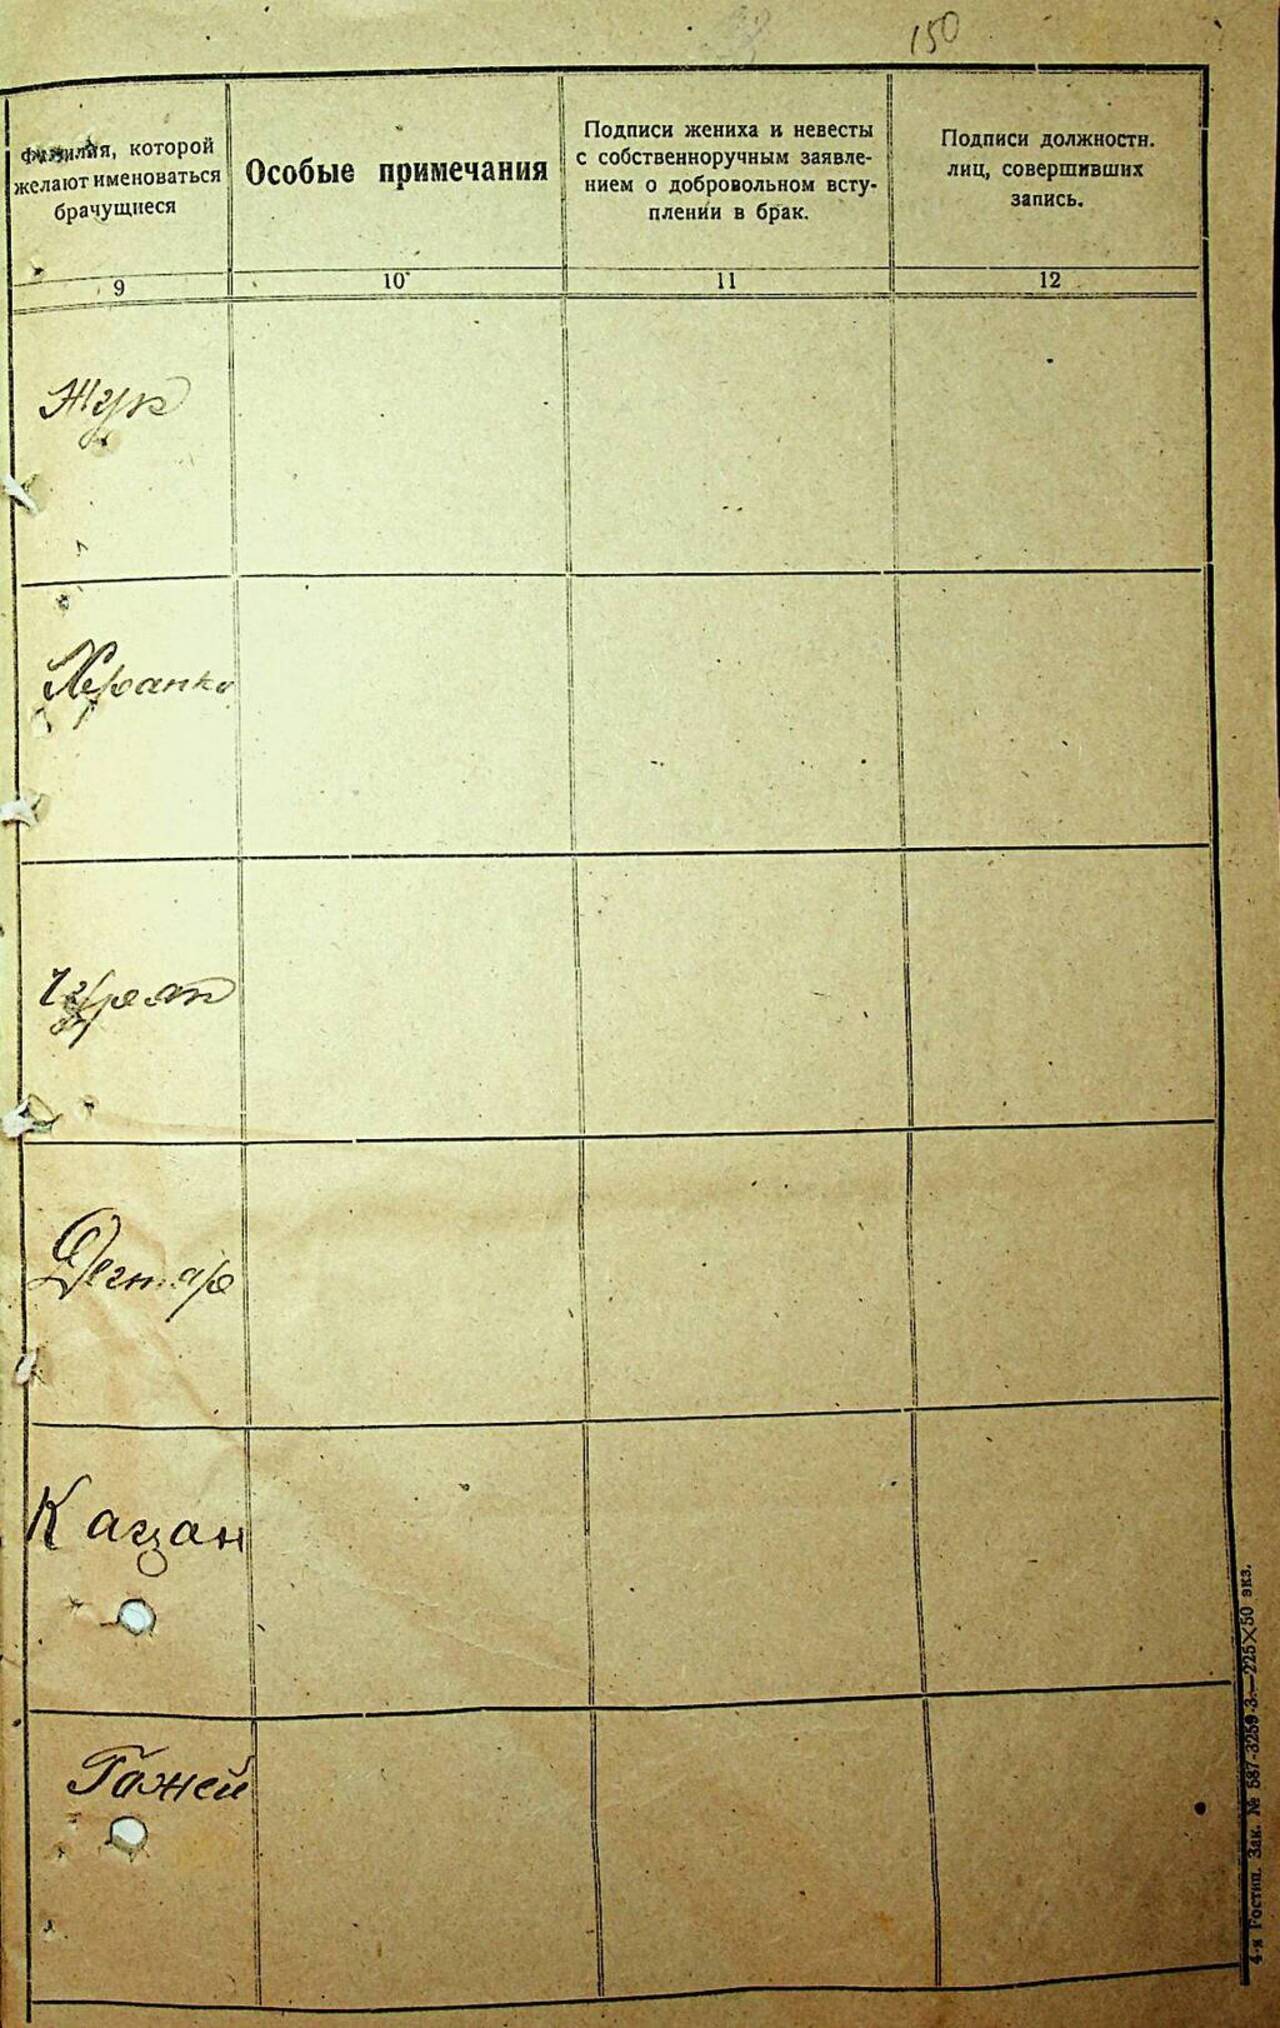 150
Фамилия, которой
желают именоваться
брачущиеся
Особые примечания
Подписи жениха и невесты
с собственноручным заявле-
нием о добровольном всту-
плении в брак.
Подписи должностн.
лиц, совершивших
запись.
9
10
11
12
Жук
Дегтяр
Кацан
Гожей
4-я Гостип. Зак. № 587-3259-3.—225×50 экз.